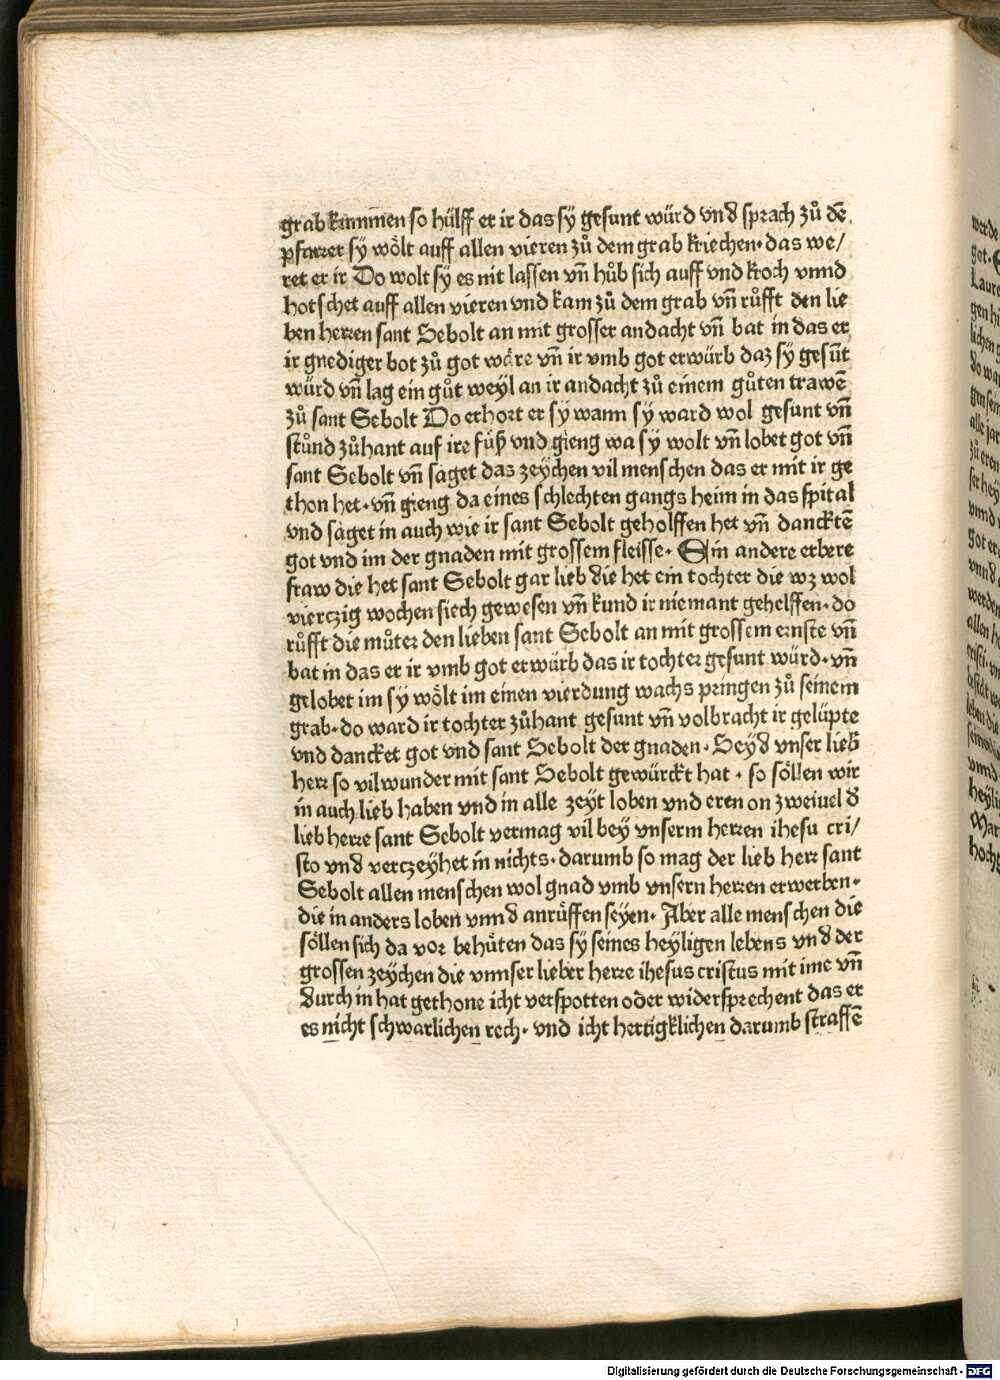 grab kummen so hülff er ir das sy gesunt würd vnd sprach zů dē
pfarrer sy wölt auff allen vieren zů dem grab kriechen· das we/
ret er ir Do wolt sy es nit lassen vn̄ hůb sich auff vnd kroch vnnd
hotschet auff allen vieren vnd kam zů dem grab vn̄ růfft den lie
ben herren sant Sebolt an mit grosser andacht vn̄ bat in das er
ir gnediger bot zů got wäre vn̄ ir vmb got erwürb daz sy gesūt
würd vn̄ lag ein gůt weyl an ir andacht zů einem gůten trawē
zů sant Sebolt Do erhort er sy wann sy ward wol gesunt vn̄
stůnd zůhant auf ire füß vnd gieng wa sy wolt vn̄ lobet got vn̄
sant Sebolt vn̄ saget das zeychen vil menschen das er mit ir ge
thon het· vn̄ gieng da eines schlechten gangs heim in das spital
vnd saget in auch wie ir sant Sebolt geholffen het vn̄ dancktē
got vnd im der gnaden mit grossem fleisse· Ein andere erbere
fraw die het sant Sebolt gar lieb die het ein tochter die wz wol
vierczig wochen siech gewesen vn̄ kund ir niemant gehelffen· do
růfft die můter den lieben sant Sebolt an mit grossem ernste vn̄
bat in das er ir vmb got erwürb das ir tochter gesunt würd· vn̄
gelobet im sy wölt im einen vierdung wachs pringen zů seinem
grab· do ward ir tochter zůhant gesunt vn̄ volbracht ir gelüpte
vnd dancket got vnd sant Sebolt der gnaden· Seyd vnser lieb
herr so vil wunder mit sant Sebolt gewürckt hat · so söllen wir
in auch lieb haben vnd in alle zeyt loben vnd eren on zweiuel d
lieb herre sant Sebolt vermag vil bey vnserm herren ihesu cri/
sto vnd verczeyhet im nichts· darumb so mag der lieb herr sant
Sebolt allen menschen wol gnad vmb vnsern herren erwerben·
die in anders loben vnnd anrüffen seyen· Aber alle menschen die
söllen sich da vor behüten das sy seines heyligen lebens vnd der
grossen zeychen die vnnser lieber herre ihesus cristus mit ime vn̄
durch in hat gethone icht verspotten oder widersprechent das er
es nicht schwarlichen rech· vnd icht hertigklichen darumb straffē
Digitalisierung gefördert durch die Deutsche Forschungsgemeinschaft - DFG